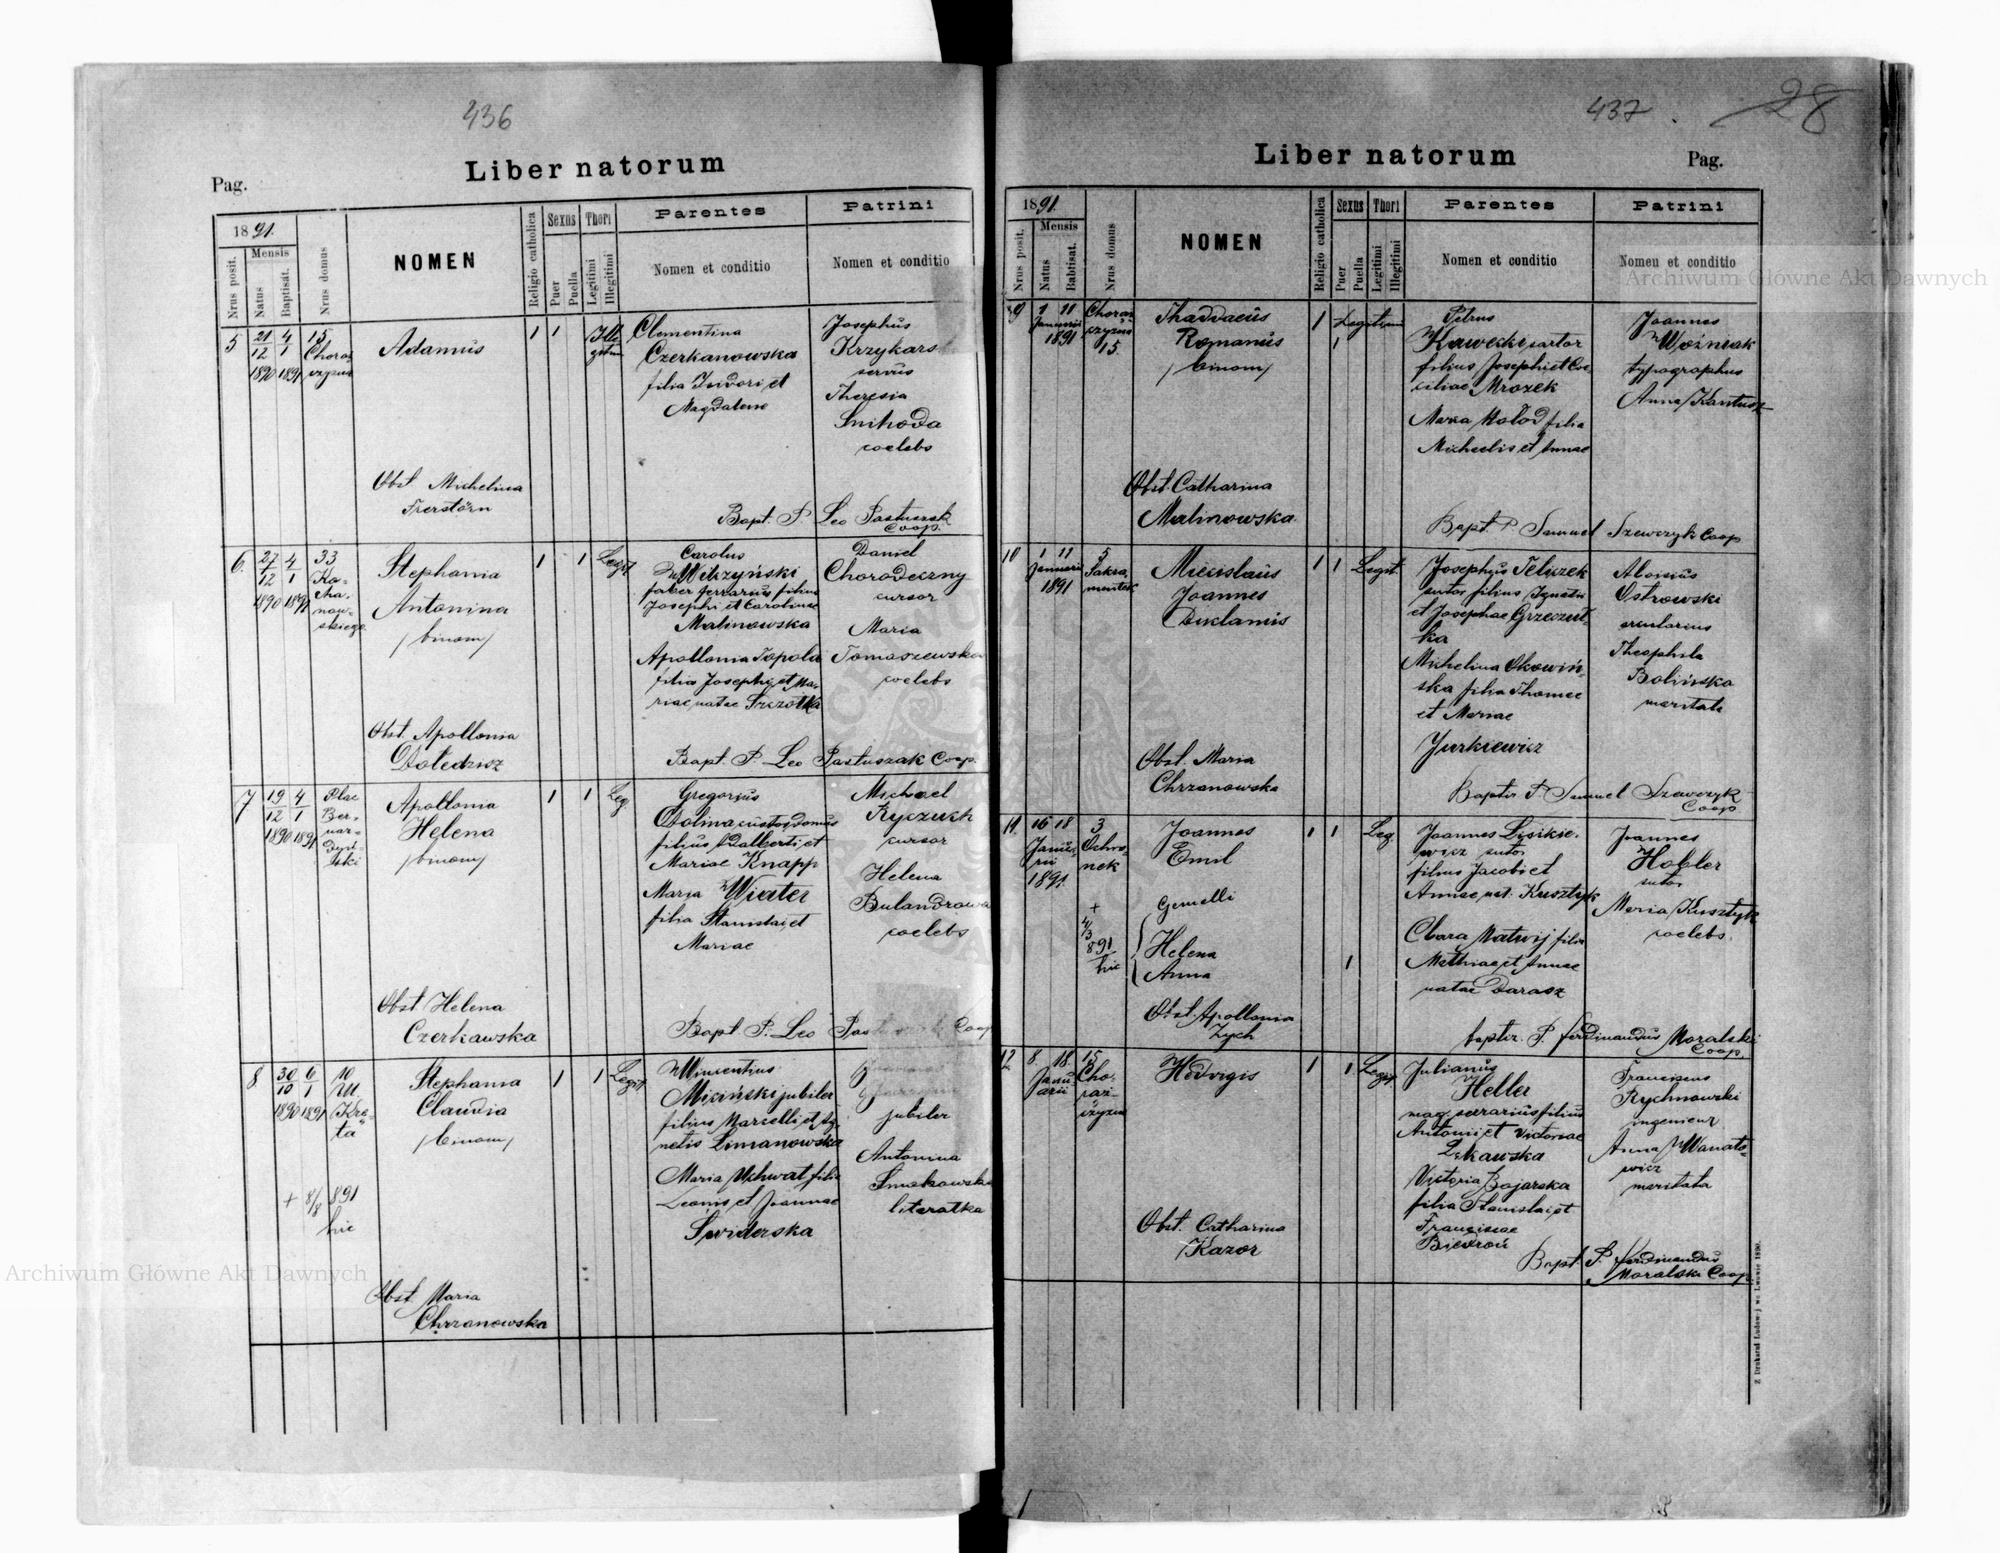 436
Liber natorum
Pag.
1891.
Nrus posit.
Mensis
Natus
Baptisat.
Nrus domus
NOMEN
Religio catholica
Sexus
Puer
Puella
Thori
Legitimi
Illegitimi
Parentes
Nomen et conditio
Patrini
Nomen et conditio
5
21/12 1890
4/1 1891
15
Adamus
Obst. Michelina
1
1
Clementina
Czerkanowska
filia Isidori et
Magdalene
Josephus
servus
Theresia
Snihoda
coelebs
Bapt. P. Leo
Coop.
6.
27/12 1890
4/1 1891
33
Ko-
cha-
now-
skiego
Stephania
Antonina
/binom/
Obst. Apollonia
1
1
Legit.
Carolus
Wilczyński
faber ferrarius filius
Josephi et Carolinae
Malinowska
Apollonia Topola
filia Josephi et Ma-
riae natae Szczotka
Daniel
Chorodeczny
cursor
Maria
Tomaszewska
coelebs
Bapt. P. Leo Pastuszak Coop.
7
19/12 1890
4/1 1891
Plac
Ber-
nar-
dyń-
ski
Apollonia
Helena
/binom/
Obst Helena
Czerkawska
1
1
Leg.
Gregorius
Dolina custos domus
filius Adalberti et
Mariae Knapp
Maria Wiater
filia Stanislai et
Mariae
Michael
cursor
Helena
Bulandrowa
coelebs
Bapt. P. Leo
Coop
8
30/10 1890
6/1 1891
10
Ul.
Kre-
ta
Stephania
Claudia
/binom/
+ 8/8 891
hic
Obst. Maria
Chrzanowska
1
1
Legit.
Vincentius
Miciński jubiler
filius Marcelli et Ag-
netis Limanowska
Maria Uchwat filia
Leonis et Joannae
Świderska
jubiler
Antonina
Smokowska
literatka
437.
28
Liber natorum
Pag.
1891.
Nrus posit.
Mensis
Natus
Babtisat.
Nrus domus
NOMEN
Religio catholica
Sexus
Puer
Puella
Thori
Legitimi
Illegitimi
Parentes
Nomen et conditio
Patrini
Nomen et conditio
9
1 11
Januarii
1891
Choraz-
czyzna
15.
Thaddaeus
Romanus
/binom/
Obst. Catharina
Malinowska.
1
1
Legitimi
Petrus
Kawecki sartor
filius Josephi et Cae-
ciliae Mrozek
Maria Hołod filia
Michaelis et Annae
Joannes
Woźniak
typographus
Anna
Bapt. P. Samuel Szewczyk Coop
10
1 11
Januarii
1891
5
Sakra-
mentek
Miecislaus
Joannes
Obst. Maria
Chrzanowska
1
1
Legit.
Josephus Teliczek
sutor filius Ignatii
et Josephae
ka
Michelina Okowiń-
ska filia Thomae
et Mariae
Jurkiewicz
Aloisius
Ostrowski
Theophila
Bolińska
maritata
Baptis P. Samuel Szewczyk
Coop
11.
16 18
Janua-
rii
1891.
3
Ochro-
nek
Joannes
Emil
Gemelli
Helena
Anna
+
4/3
891
hic
Obst. Apollonia
Zych
1
1
1
Leg.
Joannes Lysikie-
wicz sutor
filius Jacobi et
Annae nat. Kusztyk
Clara Matwij filia
Mathiae et Annae
natae Darasz
Joannes
Hobler
sutor
Maria Kusztyk
coelebs.
baptiz. P. Ferdinandus Moralski
Coop.
12
8 18
Janu
arii
15
Cho-
raz-
czyzna
Hedvigis
Obst. Catharina
Kazor
1
1
Legit
Julianus
Heller
mag. serrarius filius
Antonii et Victoriae
Lekawska
Victoria Bojarska
filia Stanislai et
Franciscae
Biedroń
Franciscus
Rychnowski
ingenieur
Anna Wanato-
wicz
maritata
Bapt. P. Ferdinandus
Moralski Coop.
Z Drukarni Ludowej we Lwowie 1890.
Archiwum Główne Akt Dawnych
Archiwum Główne Akt Dawnych